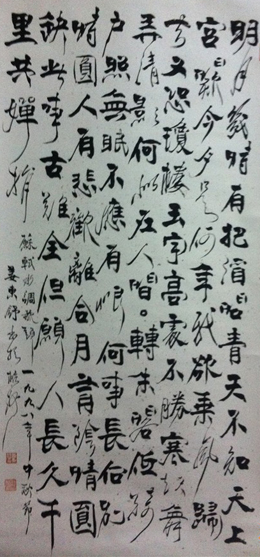 明月幾時有把酒問青天不知天上
宮闕今夕是何年我欲乘風歸
去又恐瓊樓玉宇高處不勝寒起舞
弄清影何似在人間轉朱閣低綺
戶照無眠不應有恨何事長向別
時圓人有悲歡離合月有陰晴圓
缺此事古難全但願人長久千
里共嬋娟
蘇軾水調歌頭一九九八年中秋節
婁東